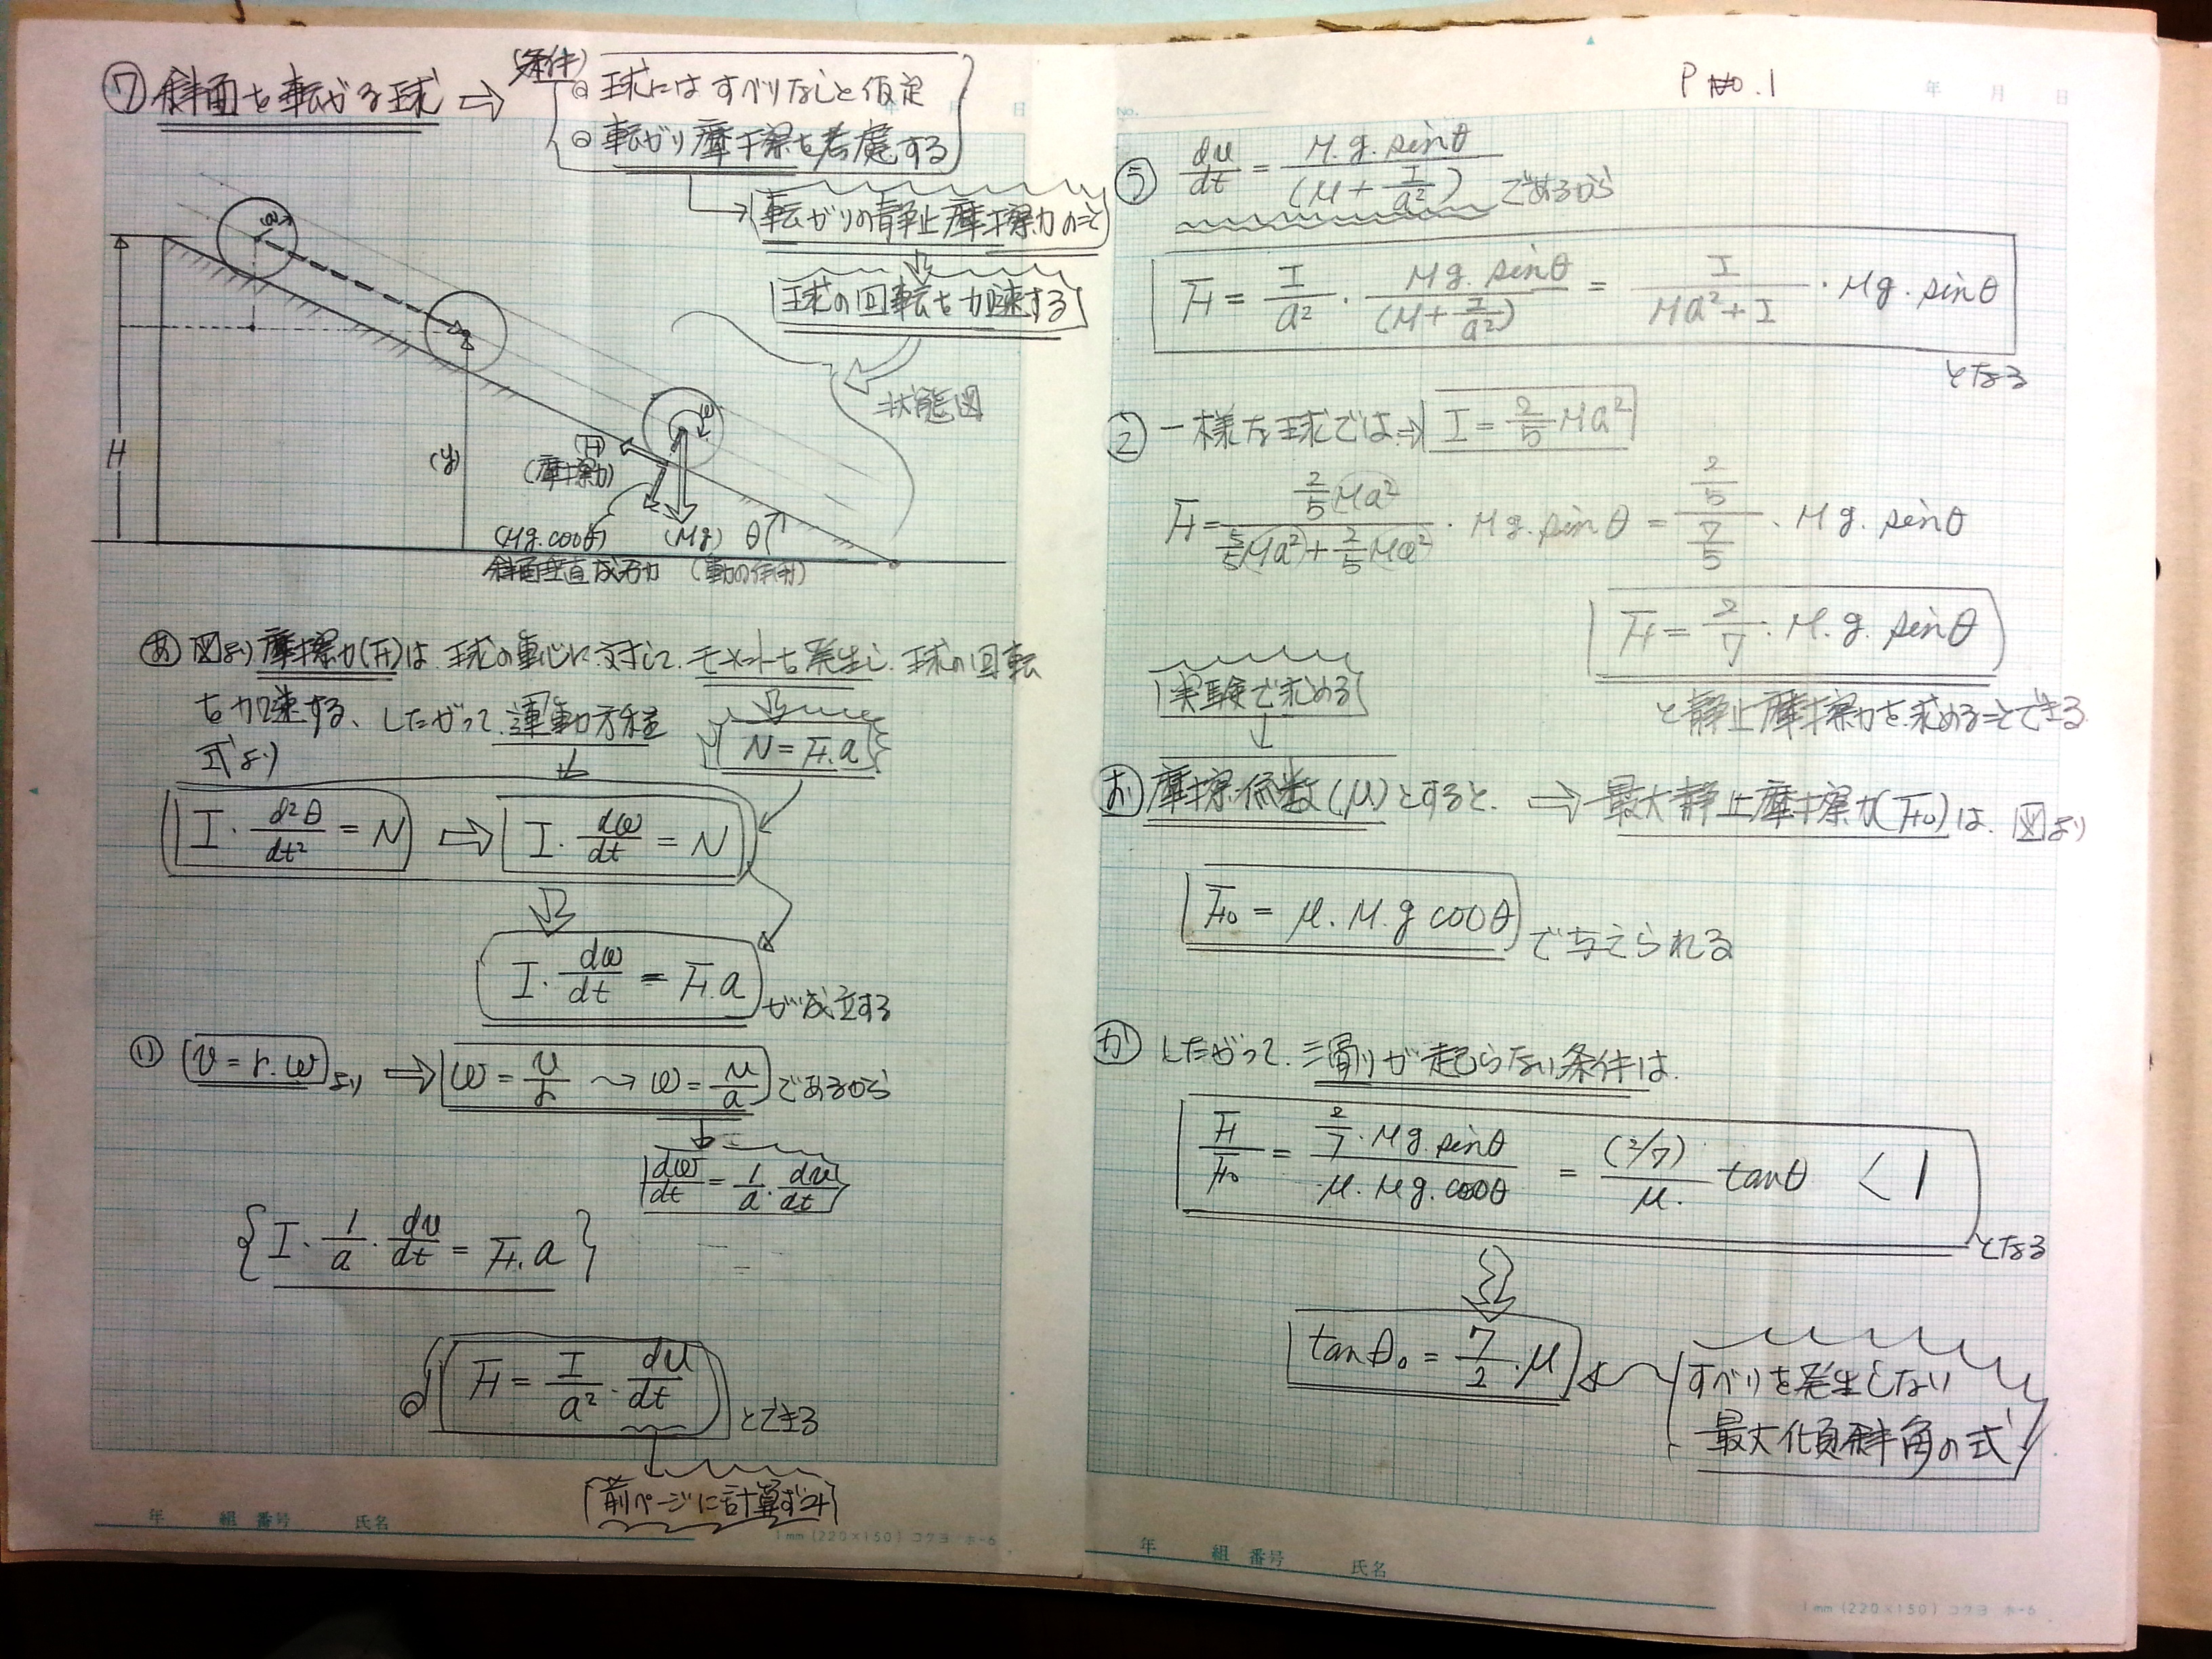 ⑦ 斜面を転がる球 ⇨
(条件)
◎ 球にはすべりなしと仮定
◎ 転がり摩擦を考慮する
転がりの静止摩擦力のこと
球の回転を加速する
状態図
H
(y)
ω
F
(摩擦力)
(Mg.cosθ)
斜面垂直成分力
(Mg)
(重力の作用)
θ
あ 図より摩擦力(F)は、球の重心に対して、モーメントを発生し、球の回転
を加速する、したがって、運動方程
式より
N = F.a
I・d²θ/dt² = N ⇨ I・dω/dt = N
I・dω/dt = F.a が成立する
い (v = r.ω)より ⇨ ω = v/r 〜→ ω = v/a であるから
dω/dt = 1/a・dv/dt
{ I・1/a・dv/dt = F.a }
◎ F = I/a²・dv/dt とできる
前ページに計算ずみ
年 組 番号 氏名
1mm (220×150) コクヨ ホ-6
P No.1
No.
年 月 日
う dv/dt = M.g.sinθ/(M + I/a²) であるから
F = I/a²・Mg.sinθ/(M + I/a²) = I/(Ma² + I)・Mg.sinθ
となる
え 一様な球では⇨ I = 2/5 Ma²
F = (2/5 Ma²)/(5/5 Ma² + 2/5 Ma²)・Mg.sinθ = (2/5)/(7/5)・Mg.sinθ
F = 2/7・M.g.sinθ
と静止摩擦力を求めることできる
実験で求める
お 摩擦係数(μ)とすると、⇨ 最大静止摩擦力(F₀)は、図より
F₀ = μ.M.g cosθ で与えられる
か したがって、滑りが起らない条件は、
F/F₀ = (2/7・Mg.sinθ)/(μ.Mg.cosθ) = (2/7)/μ. tanθ < 1
となる
tanθ₀ = 7/2・μ
すべりを発生しない
最大傾斜角の式
年 組 番号 氏名
1mm (220×150) コクヨ ホ-6